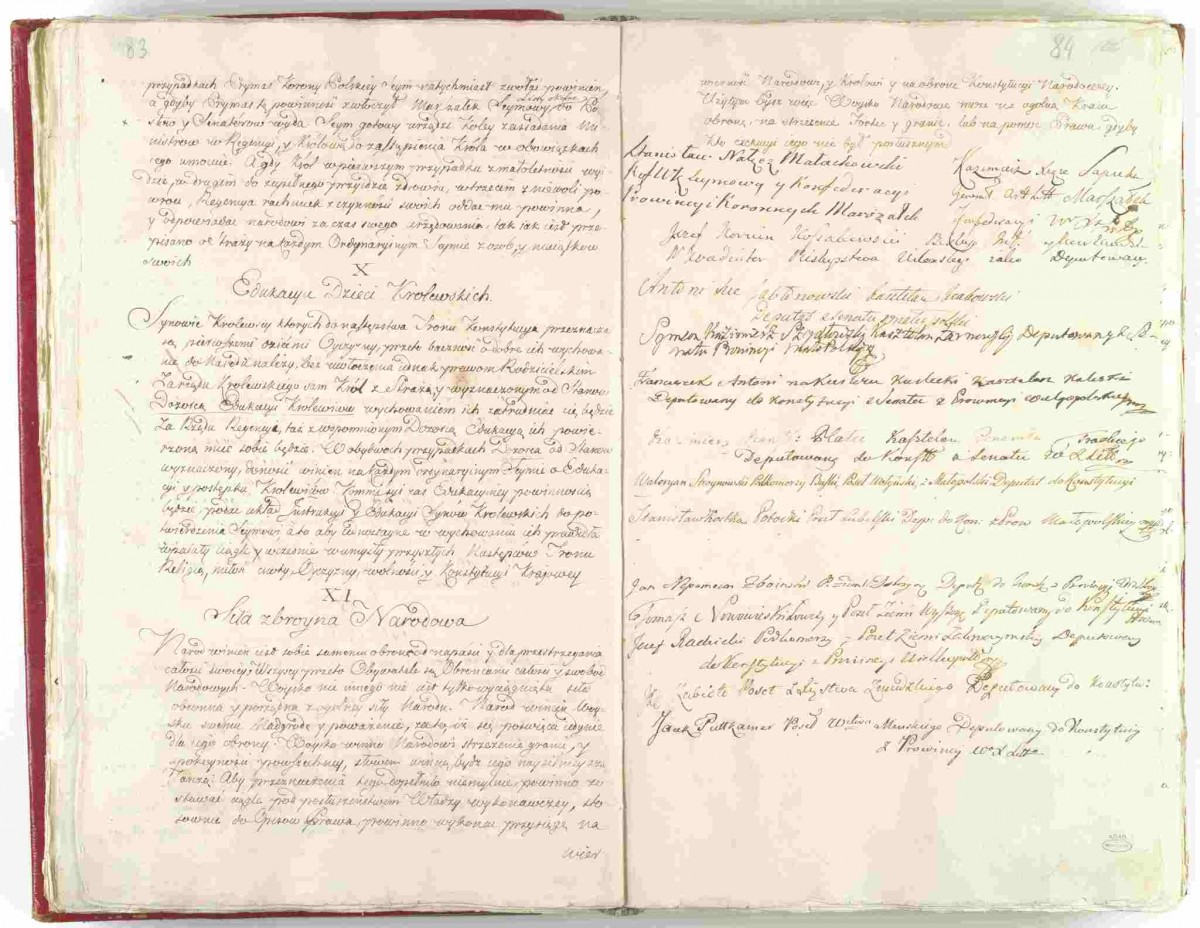 83
przypadkach Prymas Korony Polskiey Seym natychmiast zwołać powinien,
a gdyby Prymas tę powinność zwłoczył Marszałek Seymowy Listy okolne do Po-
słów y Senatorow wyda. Seym gotowy urządzi koley zasiadania Mi-
nistrow w Regencyi, y Krolowę do zastąpienia Krola w obowiązkach
iego umocnie. A gdy Krol w pierwszym przypadku z małoletności wy-
dzie, w drugim do zupełnego przyidzie zdrowia, w trzecim z niewoli po-
wroci, Regencya rachunek z czynności swoich oddać mu powinna,
y odpowiadać narodowi za czas swego urzędowania, tak iak iest prze-
pisano o Straży na każdym Ordynaryinym Seymie z osob, y maiątkow
swoich
X
Edukacya Dzieci Krolewskich.
Synowie Krolewscy ktorych do następstwa Tronu Konstytucya przeznacza
są pierwszemi dziećmi Oyczyzny, przeto baczność o dobre ich wychowa-
nie do Narodu należy, bez uwłoczenia iednak prawom Rodzicielskim
Za rządu Krolewskiego sam Krol z Strażą y wyznaczonym od Stanow
Dozorcą Edukacyi Krolewicow wychowaniem ich zatrudniać się będzie
Za Rządu Regencyi, taż z wspomnionym Dozorcą Edukacyą ich powie-
rzoną mieć sobie będzie. W obydwoch przypadkach Dozorca od Stanow
wyznaczony, donosić winien na każdym Ordynaryinym Seymie o Eduka-
cyi y postępku Krolewicow. Kommissyi zas Edukacyiney powinnością
będzie podać układ Instrukcyi y Edukacyi Synow Krolewskich do po-
twierdzenia Seymowi, a to aby iednostayne w wychowaniu ich prawidła
wpaiały ciągle y wcześnie w umysły przyszłych Następcow Tronu
Religią, miłość cnoty, Oyczyzny, wolności y Konstytucyi Kraiowey
XI
Siła zbroyna Narodowa
Narod winien iest sobie samemu obronę od napaści y dla przestrzegania
całości swoiey, Wszyscy przeto Obywatele są Obrońcami całości y swobod
Narodowych. Woysko nic innego nie iest tylko wyciągnięta siła
obronna y porządna z ogolney siły Narodu. Narod winien Woy-
sku swemu Nadgrodę y poważenie, za to, iż się poświęca iedynie
dla iego obrony. Woysko winno Narodowi strzeżenie granic, y
spokoyności powszechney, słowem winno bydź iego naysilnieyszą
Tarczą. Aby przeznaczenia tego dopełniło niemylnie, powinno zo-
stawać ciągle pod posłuszeństwem Władzy wykonawczey, sto-
sownie do Opisow Prawa, powinno wykonać przysięgę na
wier
84
wierność Narodowi, y Krolowi y na obronę Konstytucyi Narodowey.
Użytym bydź więc Woysko Narodowe może na ogolną Kraiu
obronę, na strzeżenie Fortec y granic, lub na pomoc Prawu, gdyby
kto exekucyi iego nie był posłusznym
Stanisław Nałęcz Małachowski
Ref: WK Seymowy y Konfederacyi
Prowincyi Koronnych Marszałek
Kazimierz Xiąże Sapieha
Generał Art: Litt: Marszałek
Konfederacyi W X Litt:
Jozef Korwin Kossakowski Biskup Infl: y Kurlandzki
Koadiutor Biskupstwa Wileńskiego iako Deputowany.
Antoni Xże Jabłonowski Kasztelan Krakowski
Deputat z Senatu
Symeon Kazimierz Szydłowski Kasztelan Żarnowski Deputowany z Se-
natu Prowincyi Małopolskiey
Franciszek Antoni na Kwilczu Kwilecki Kasztelan Kaliski
Deputowany do Konstytucyi z Senatu z Prowincyi Wielgopolskiey
Kazimierz Plater Kasztelan Trockiego
Deputowany do Konstt: z Senatu W X Litt:
Waleryan Stroynowski Podkomorzy Buski, Poseł Wołyński, z Małopolski Deputat do Konstytucyi
Stanisław Kostka Potocki Poseł Lubelski Dep: do Kon: z Prow: Małopolskiey
Jan Nepomucen Zboinski Deput: do Konst: z Prowincyi
Tomasz Nowowieski Poseł Ziemi Wyszogr: Deputowany do Konstytucyi
Jozef Radzicki Podkomorzy y Poseł Ziemi Zakroczymskiey Deputowany
do Konstytucyi z Prowincyi Wielkopolskiey
Zabiełło Poseł z Xięstwa Żmudzkiego Deputowany do Konstytu:
Jacek Puttkamer Poseł Wdztwa Minskiego Deputowany do Konstytucyi
z Prowincy W X Litt: